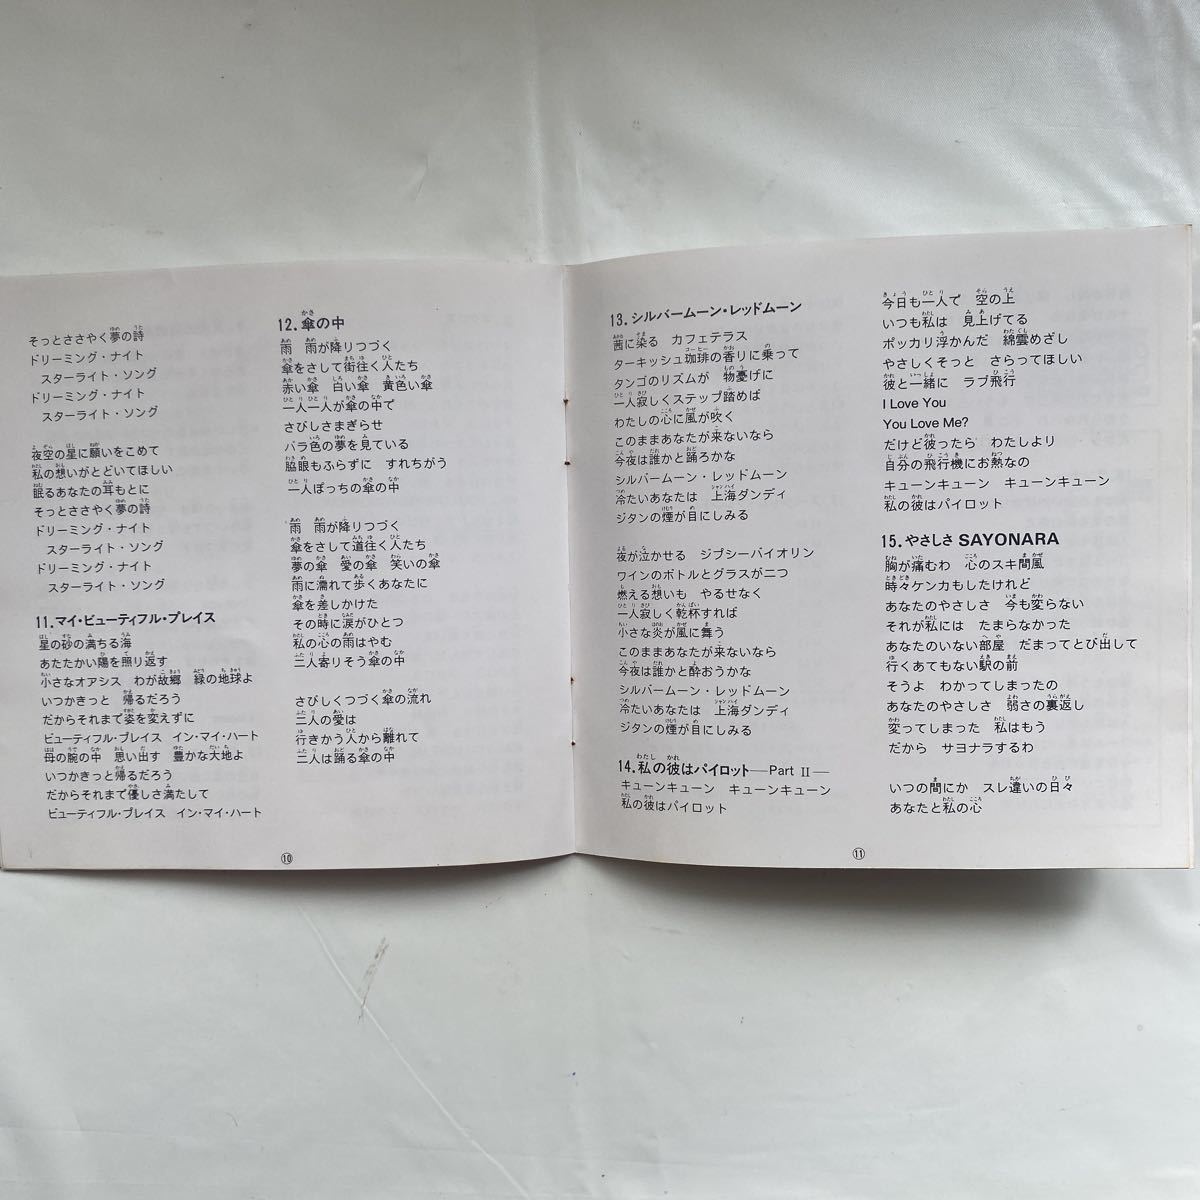 そっとささやく夢の詩
ドリーミング・ナイト
スターライト・ソング
ドリーミング・ナイト
スターライト・ソング
夜空の星に願いをこめて
私の想いがとどいてほしい
眠るあなたの耳もとに
そっとささやく夢の詩
ドリーミング・ナイト
スターライト・ソング
ドリーミング・ナイト
スターライト・ソング
11.マイ・ビューティフル・プレイス
星の砂の満ちる海
あたたかい陽を照り返す
小さなオアシス　わが故郷　緑の地球よ
いつかきっと　帰るだろう
だからそれまで姿を変えずに
ビューティフル・プレイス　イン・マイ・ハート
母の腕の中　思い出す　豊かな大地よ
いつかきっと帰るだろう
だからそれまで優しさ満たして
ビューティフル・プレイス　イン・マイ・ハート
12.傘の中
雨　雨が降りつづく
傘をさして街往く人たち
赤い傘　白い傘　黄色い傘
一人一人が傘の中で
さびしさまぎらせ
バラ色の夢を見ている
脇眼もふらずに　すれちがう
一人ぼっちの傘の中
雨　雨が降りつづく
傘をさして道往く人たち
夢の傘　愛の傘　笑いの傘
雨に濡れて歩くあなたに
傘を差しかけた
その時に涙がひとつ
私の心の雨はやむ
二人寄りそう傘の中
さびしくつづく傘の流れ
二人の愛は
行きかう人から離れて
二人は踊る傘の中
⑩
13.シルバームーン・レッドムーン
茜に染る　カフェテラス
ターキッシュ珈琲の香りに乗って
タンゴのリズムが　物憂げに
一人寂しくステップ踏めば
わたしの心に風が吹く
このままあなたが来ないなら
今夜は誰かと踊ろかな
シルバームーン・レッドムーン
冷たいあなたは　上海ダンディ
ジタンの煙が目にしみる
夜が泣かせる　ジプシーバイオリン
ワインのボトルとグラスが二つ
燃える想いも　やるせなく
一人寂しく乾杯すれば
小さな炎が風に舞う
このままあなたが来ないなら
今夜は誰かと酔おうかな
シルバームーン・レッドムーン
冷たいあなたは　上海ダンディ
ジタンの煙が目にしみる
14.私の彼はパイロット―Part II―
キューンキューン　キューンキューン
私の彼はパイロット
今日も一人で　空の上
いつも私は　見上げてる
ポッカリ浮かんだ　綿雲めざし
やさしくそっと　さらってほしい
彼と一緒に　ラブ飛行
I Love You
You Love Me?
だけど彼ったら　わたしより
自分の飛行機にお熱なの
キューンキューン　キューンキューン
私の彼はパイロット
15.やさしさ SAYONARA
胸が痛むわ　心のスキ間風
時々ケンカもしたけれど
あなたのやさしさ　今も変らない
それが私には　たまらなかった
あなたのいない部屋　だまってとび出して
行くあてもない駅の前
そうよ　わかってしまったの
あなたのやさしさ　弱さの裏返し
変ってしまった　私はもう
だから　サヨナラするわ
いつの間にか　スレ違いの日々
あなたと私の心
⑪